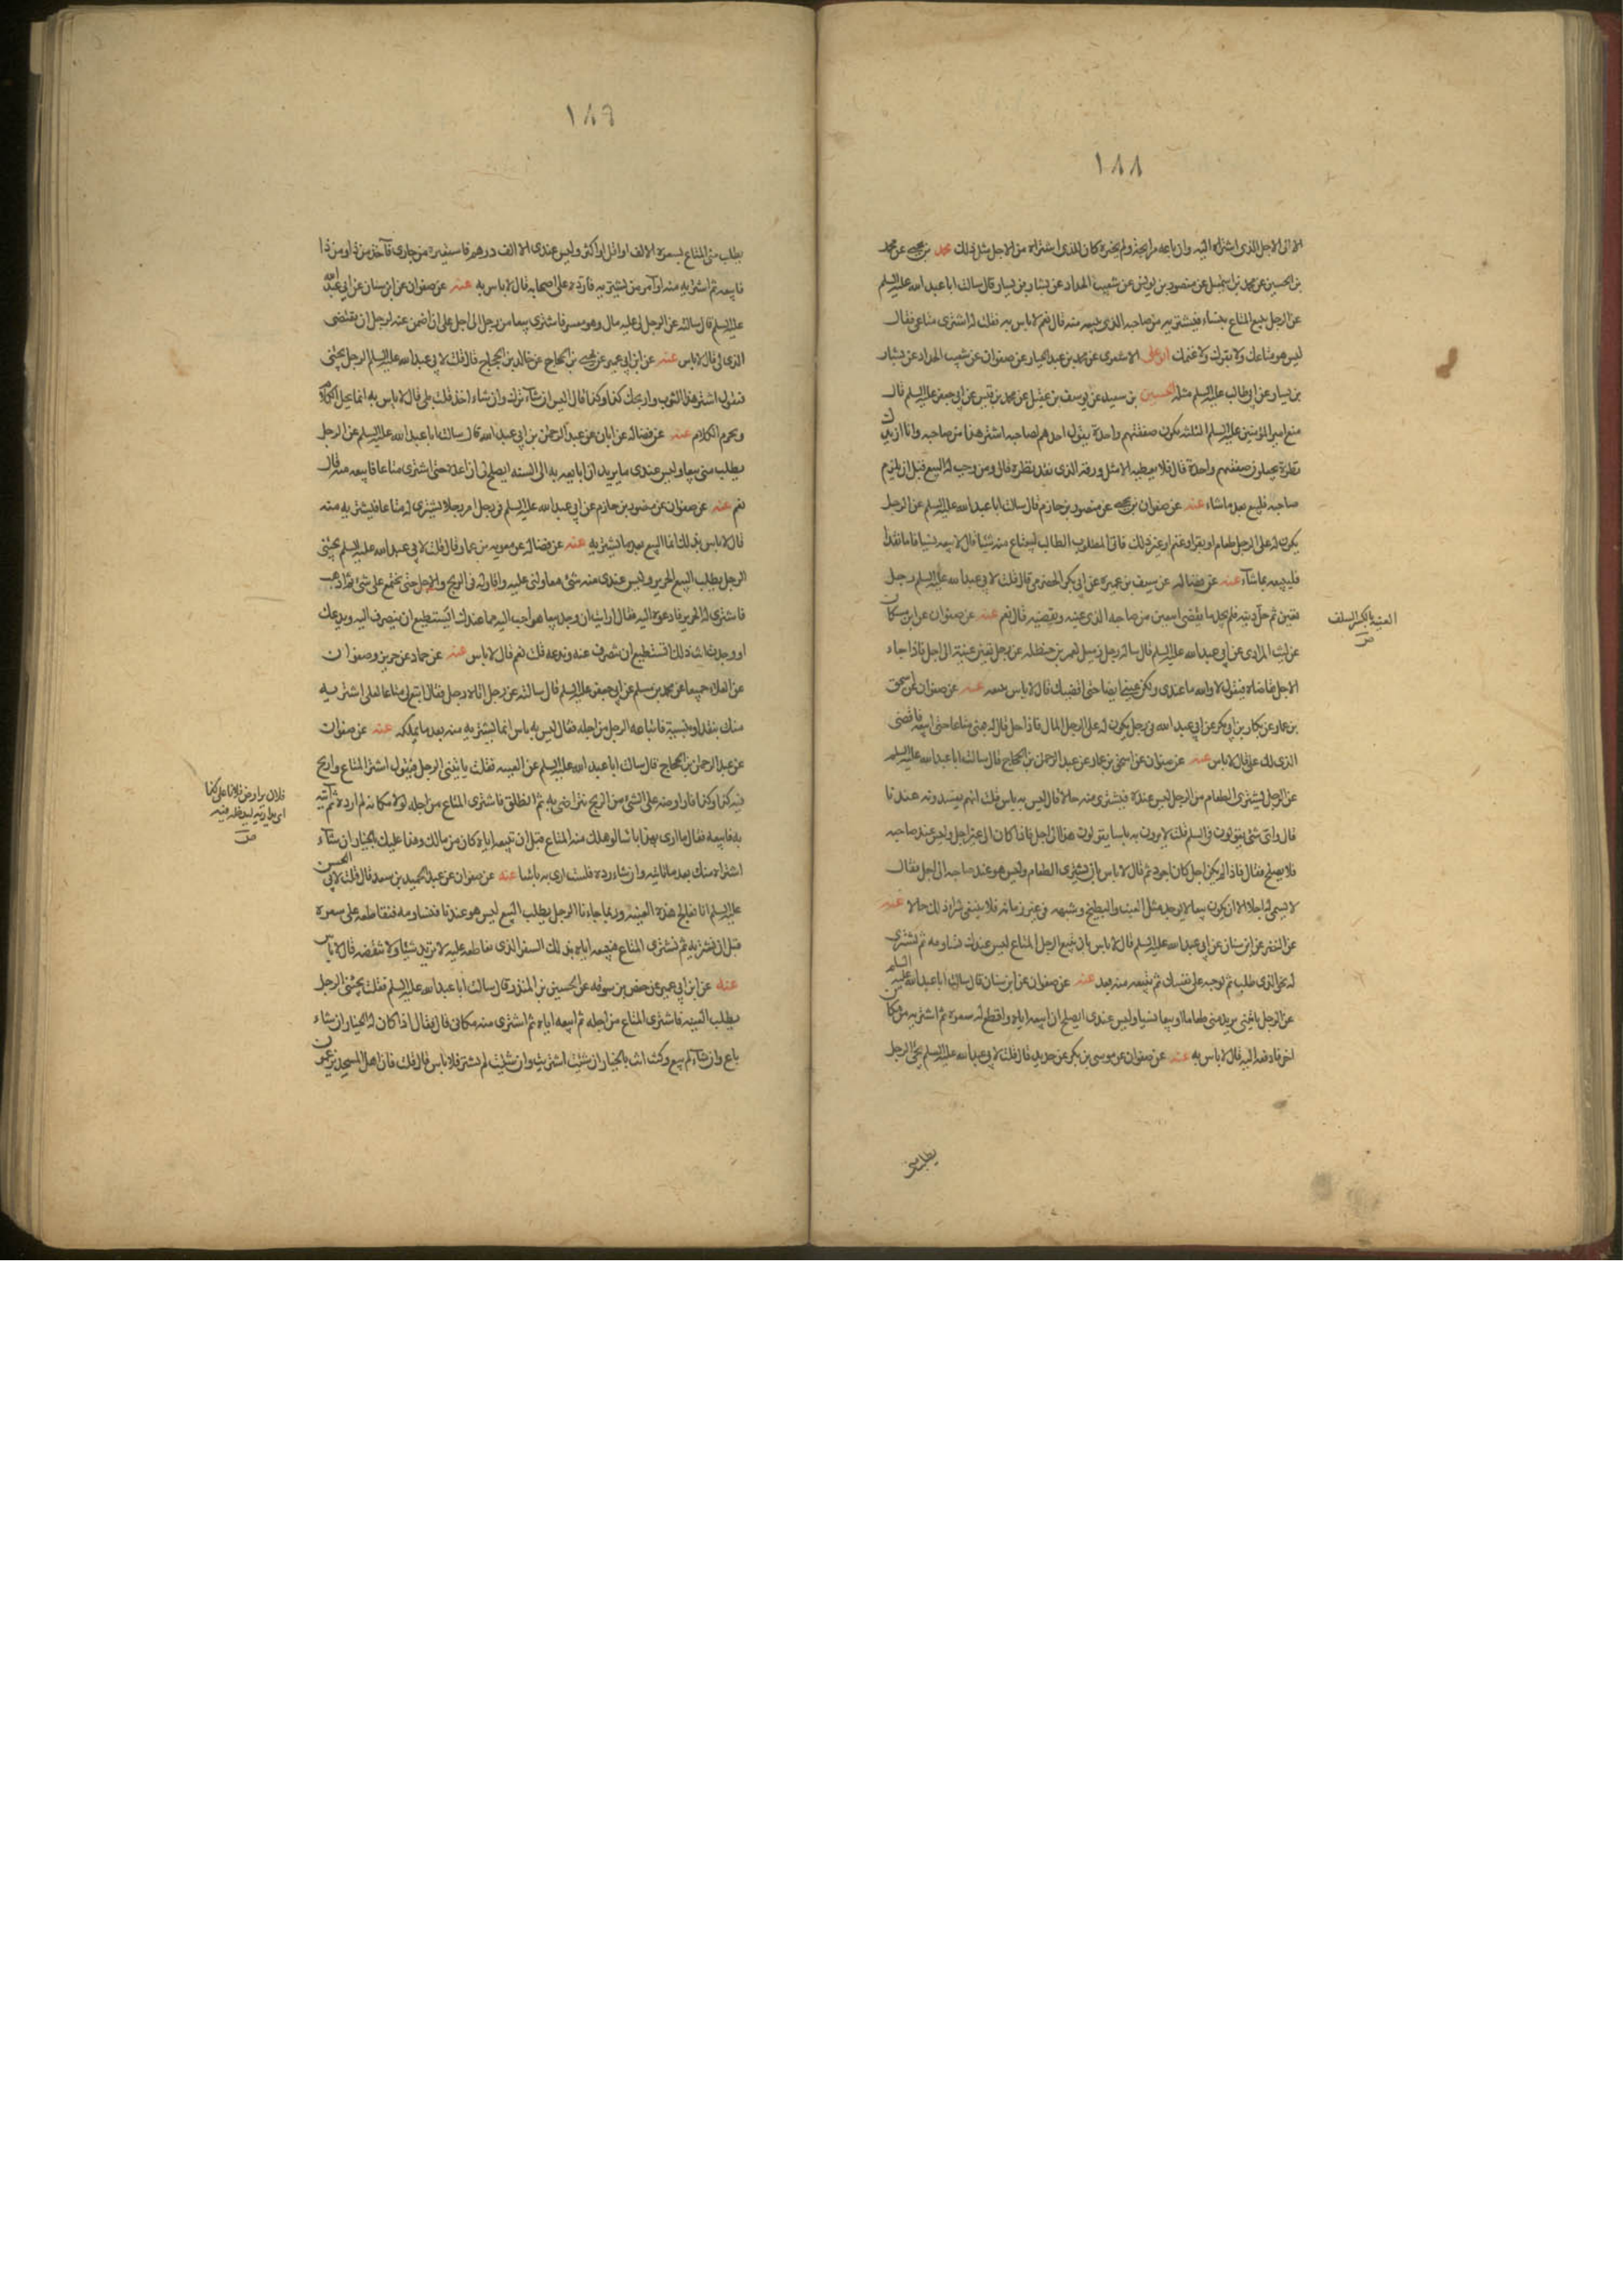 ١٨٨
الا الى الاجل الذى اشتراه اليه وان باعه مرابحة ولم يخبره كان للذى اشتراه من الاجل مثل ذلك محمد بن يحيى عن محمد
بن الحسين عن محمد بن اسمعيل عن منصور بن يونس عن شعيب الحداد عن بشار بن يسار قال سالت ابا عبد الله عليه السلم
عن الرجل يبيع المتاع بنساء فيشتريه من صاحبه الذى يبيعه منه قال نعم لا باس به فقلت له اشترى متاعى فقال
ليس هو متاعك ولا بقرك ولا غنمك ابو على الاشعرى عن محمد بن عبد الجبار عن صفوان عن شعيب الحداد عن بشار
بن يسار عن ابى عليه السلم مثله الحسين بن سعيد عن يوسف بن عقيل عن محمد بن قيس عن ابى جعفر عليه السلم قال
منع امير المؤمنين عليه السلم الثلثه تكون صفقتهم واحدة يقول احدهم لصاحبه اشتر هذا من صاحبه وانا ازيدك
نظرة يجعلون صفقتهم واحدة قال فلا يعطيه الا مثل ورقه الذى نقد نظرة قال ومن وجب له البيع قبل ان يلزم
صاحبه فليبع بعد ما شاء عنه عن صفوان بن يحيى عن منصور بن حازم قال سالت ابا عبد الله عليه السلم عن الرجل
يكون له على الرجل طعام او بقر او غنم او غير ذلك فاتى المطلوب الطالب ليبتاع منه شيئا قال لا يبعه نسيا فاما نقدا
فليبيعه بما شاء عنه عن فضاله عن سيف بن عميرة عن ابى بكر الحضرمى قال قلت لابى عبد الله عليه السلم رجل
تعين ثم حل دينه فلم يجد ما يقضى ايتعين من صاحبه الذى عينه ويقضيه قال نعم عنه عن صفوان عن ابن مسكان
عن ليث المرادى عن ابى عبد الله عليه السلم قال ساله رجل زميل لعمر بن حنظله عن رجل تعين عينة الى اجل فاذا جاء
الاجل تقاضاه فيقول لا والله ما عندى ولكن عينى ايضا حتى اقضيك قال لا باس ببيعه عنه عن صفوان عن اسحق
بن عمار عن بكار بن ابى بكر عن ابى عبد الله فى رجل يكون له على الرجل المال فاذا حل قال له بعنى متاعا حتى ابيعه فاقضى
الذى لك على قال لا باس عنه عن صفوان عن اسحق بن عمار عن عبد الرحمن بن الحجاج قال سالت ابا عبد الله عليه السلم
عن الرجل يشترى الطعام من الرجل ليس عنده فيشترى منه حالا قال ليس به باس قلت انهم يفسدونه عندنا
قال واى شئ يقولون فى السلم قلت لا يرون به باسا يقولون هذا الى اجل فاذا كان الى غير اجل وليس عند صاحبه
فلا يصلح فقال فاذا لم يكن اجل كان اجود ثم قال لا باس بان يشترى الطعام وليس هو عند صاحبه الى اجل فقال
لا يسمى له اجلا الا ان يكون بيعا لا يوجد مثل العنب والبطيخ وشبهه فى غير زمانه فلا ينبغى شراء ذلك حالا عنه
عن النضر عن ابن سنان عن ابى عبد الله عليه السلم قال لا باس بان تبيع الرجل المتاع ليس عندك تساومه ثم تشترى
له نحو الذى طلب ثم توجبه على نفسك ثم تبيعه منه بعد عنه عن صفوان عن ابن سنان قال سالت ابا عبد الله عليه السلم
عن الرجل ياتينى يريد منى طعاما او بيعا نسيا وليس عندى ايصلح ان ابيعه اياه واقطع له سعره ثم اشتريه من مكان
اخر فادفعه اليه قال لا باس به عنه عن صفوان عن موسى بن بكر عن حديد قال قلت لابى عبد الله عليه السلم يجئ الرجل
العينة بالكسر السلف
ص
يطلب منى
١٨٩
يطلب منى المتاع بسعره الالف او اقل او اكثر وليس عندى الا الف درهم فاستعيره من جارى فآخذ من ذا ومن ذا
فابيعه ثم اشتريه منه او آمر من يشتريه فارده على اصحابه قال لا باس به عنه عن صفوان عن ابن سنان عن ابى عبد الله
عليه السلم قال سالته عن الرجل لى عليه مال وهو معسر فاشترى بيعا من رجل الى اجل على ان اضمن عنه لرجل ان يقتضى
الذى لى قال لا باس عنه عن ابن ابى عمير عن يحيى بن الحجاج عن خالد بن الحجاج قال قلت لابى عبد الله عليه السلم الرجل يجئنى
فيقول اشتر هذا الثوب واربحك كذا وكذا قال اليس ان شاء ترك وان شاء اخذ قلت بلى قال لا باس به انما يحل الكلام
ويحرم الكلام عنه عن فضاله عن ابان عن عبد الرحمن بن ابى عبد الله قال سالت ابا عبد الله عليه السلم عن الرجل
يطلب منى بيعا وليس عندى ما يريد ان ابايعه به الى السنه ايصلح لى ان اعده حتى اشترى متاعا فابيعه منه قال
نعم عنه عن صفوان عن منصور بن حازم عن ابى عبد الله عليه السلم فى رجل امر رجلا يشترى له متاعا فيشتريه منه
قال لا باس بذلك انما البيع بعد ما يشتريه عنه عن فضاله عن معويه بن عمار قال قلت لابى عبد الله عليه السلم يجئنى
الرجل يطلب البيع الحرير وليس عندى منه شئ فيقاولنى عليه واقاوله فى الربح والاجل حتى نجتمع على شئ ثم اذهب
فاشترى له الحرير فادعوه اليه فقال ارايت ان وجد بيعا هو احب اليه مما عندك ايستطيع ان ينصرف اليه ويدعك
او وجدت انت ذلك اتستطيع ان تنصرف عنه وتدعه قلت نعم قال لا باس عنه عن حماد عن حريز وصفوان
عن العلاء جميعا عن محمد بن مسلم عن ابى جعفر عليه السلم قال سالته عن رجل اتاه رجل فقال ابتع لى متاعا لعلى اشتريه
منك بنقد او بنسية فابتاعه الرجل من اجله فقال ليس به باس انما يشتريه منه بعد ما يملكه عنه عن صفوان
عن عبد الرحمن بن الحجاج قال سالت ابا عبد الله عليه السلم عن العينه فقلت ياتينى الرجل فيقول اشتر المتاع واربح
فيه كذا وكذا فاراوضه على الشئ من الربح نتراضى به ثم انطلق فاشترى المتاع من اجله لولا مكانه لم ارده ثم آتيه
به فابيعه فقال ما ارى بهذا باسا لو هلك منه المتاع قبل ان تبيعه اياه كان من مالك وهذا عليك بالخيار ان شاء
اشتراه منك بعد ما تاتيه وان شاء رده فلست ارى به باسا عنه عن صفوان عن عبد الحميد بن سعد قال قلت لابى الحسن
عليه السلم انا نعالج هذه العينه وربما جاءنا الرجل يطلب البيع ليس هو عندنا فنساومه فنقاطعه على سعره
قبل ان نشتريه ثم نشترى المتاع فنبيعه اياه بذلك السعر الذى نقاطعه عليه لا نزيد شيئا ولا ننقصه قال لا باس
عنه عن ابن ابى عمير عن حفص بن سوقه عن الحسين بن المنذر قال سالت ابا عبد الله عليه السلم فقلت يجئنى الرجل
يطلب العينه فاشترى المتاع من اجله ثم ابيعه اياه ثم اشترى منه مكانى قال فقال اذا كان له الخيار ان شاء
باع وان شاء لم يبع وكنت انت بالخيار ان شئت اشتريت وان شئت لم تشتر فلا باس قال قلت فان اهل المسجد يزعمون
فلان يراوض فلانا على كذا
اى يداريه ليدخله فيه
ص